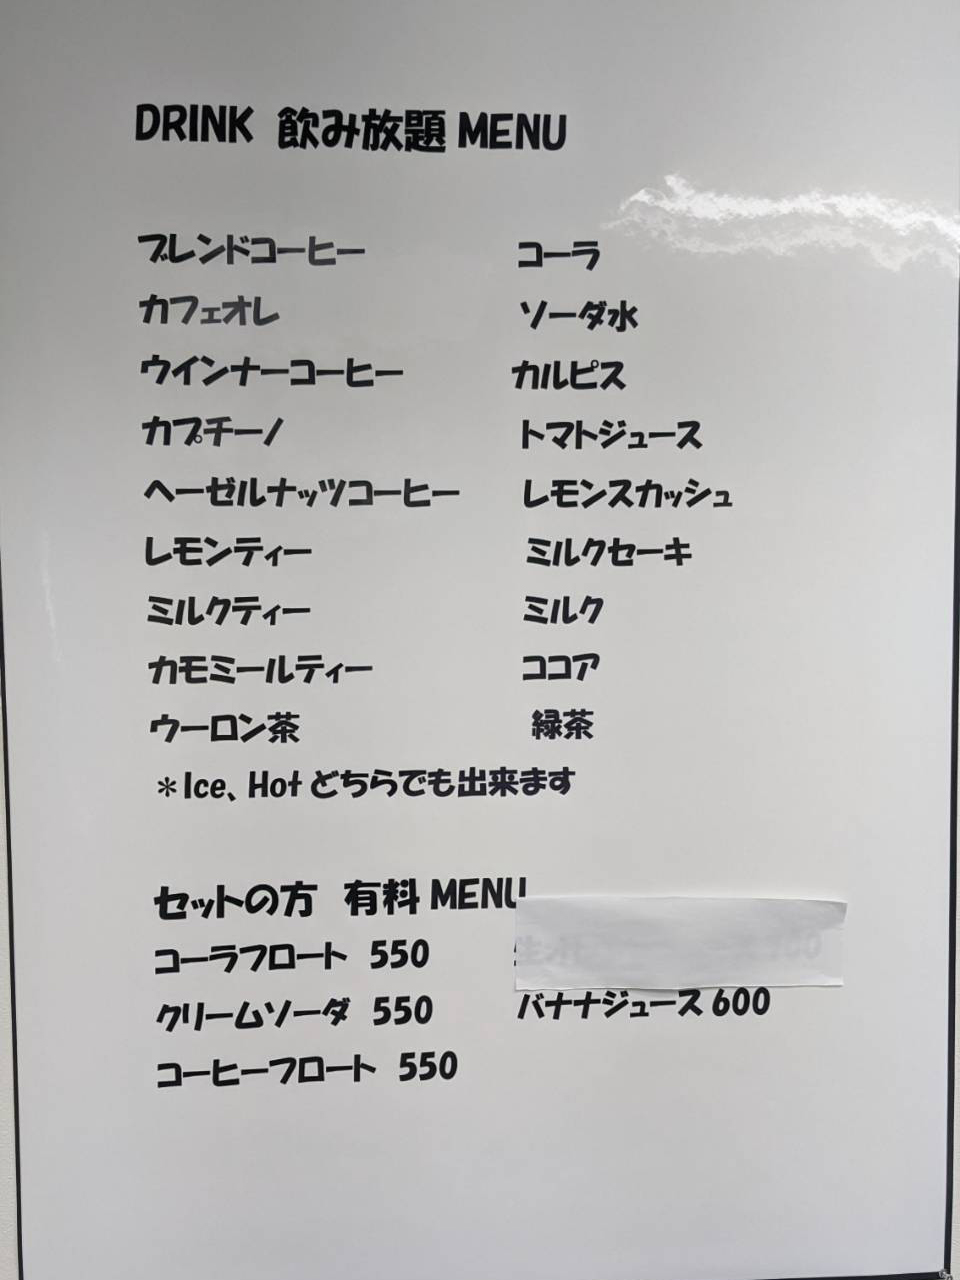 DRINK 飲み放題 MENU
ブレンドコーヒー
カフェオレ
ウインナーコーヒー
カプチーノ
ヘーゼルナッツコーヒー
レモンティー
ミルクティー
カモミールティー
ウーロン茶
コーラ
ソーダ水
カルピス
トマトジュース
レモンスカッシュ
ミルクセーキ
ミルク
ココア
緑茶
*Ice、Hot どちらでも出来ます
セットの方 有料 MENU
コーラフロート 550
クリームソーダ 550
コーヒーフロート 550
バナナジュース 600